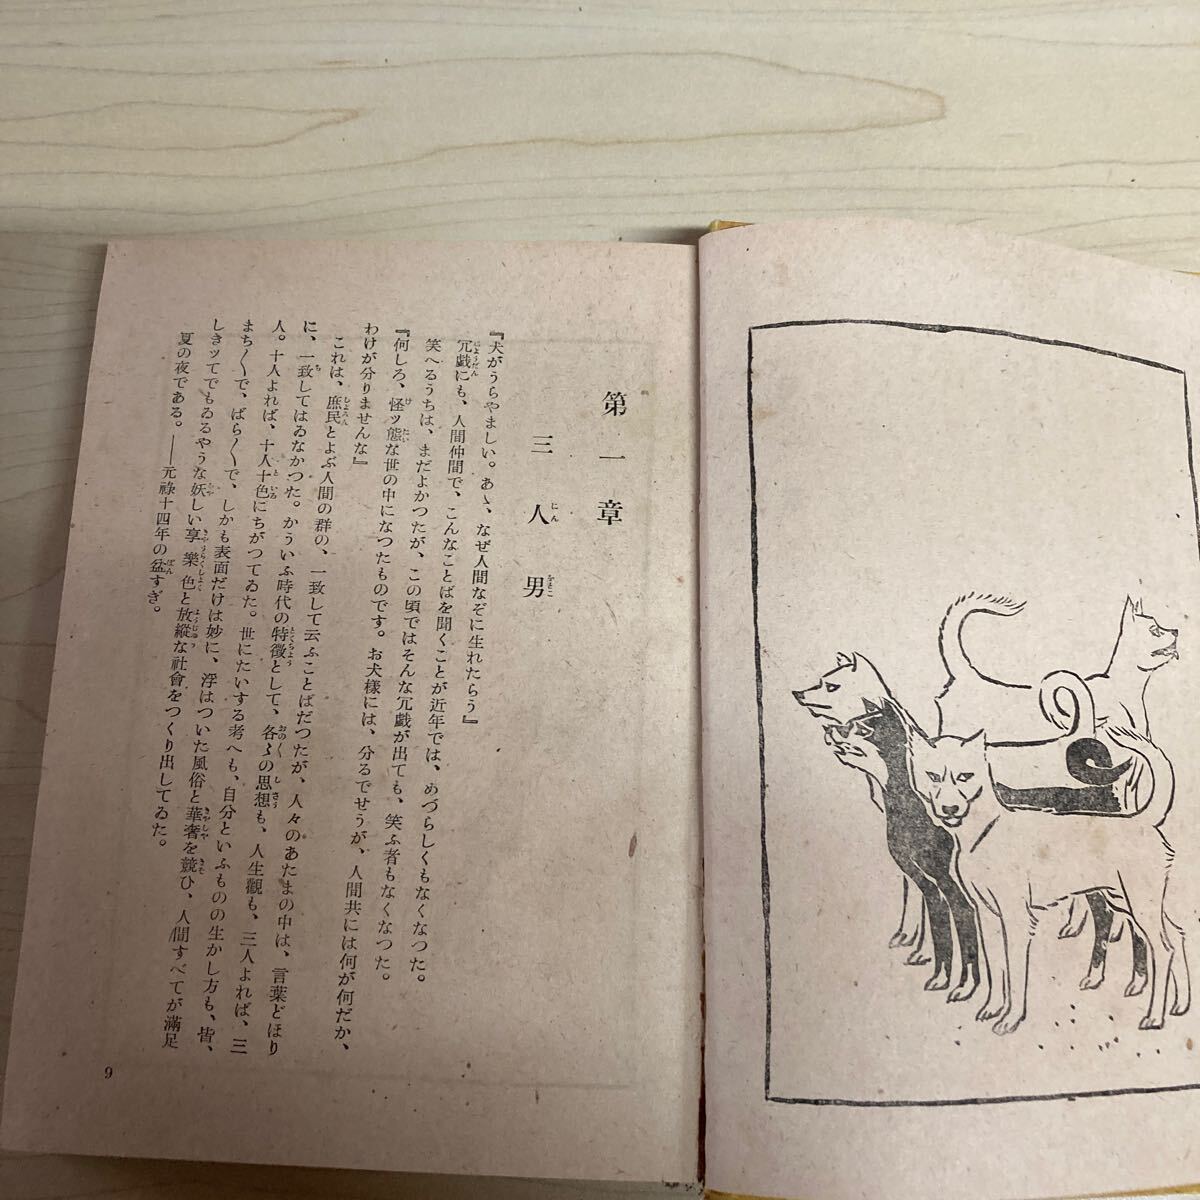 第一章
三人男
『犬がうらやましい。あゝ、なぜ人間なぞに生れたらう』
冗戯にも、人間仲間で、こんなことばを聞くことが近年では、めづらしくもなくなつた。
笑へるうちは、まだよかつたが、この頃ではそんな冗戯が出ても、笑ふ者もなくなつた。
『何しろ、怪ッ態な世の中になつたものです。お犬様には、分るでせうが、人間共には何が何だか、
わけが分りませんな』
これは、庶民とよぶ人間の群の、一致して云ふことばだつたが、人々のあたまの中は、言葉どほり
に、一致してはゐなかつた。かういふ時代の特徴として、各〻の思想も、人生觀も、三人よれば、三
人。十人よれば、十人十色にちがつてゐた。世にたいする考へも、自分といふものの生かし方も、皆、
まち〳〵で、ばら〳〵で、しかも表面だけは妙に、浮はついた風俗と華奢を競ひ、人間すべてが滿足
しきッてでもゐるやうな妖しい享樂色と放縱な社會をつくり出してゐた。
夏の夜である。――元祿十四年の盆すぎ。
9